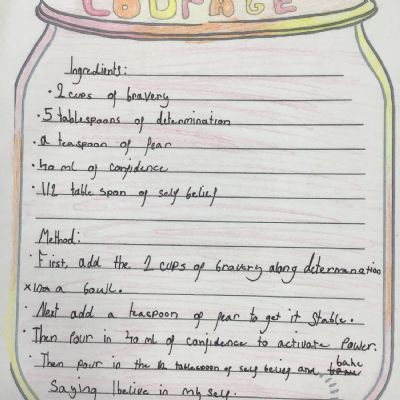 COURAGE
Ingredients:
• 2 cups of bravery
• 5 tablespoons of determination
• a teaspoon of fear
• 40 ml of confidence
• 1/2 table span of self belief
Method:
• First, add the 2 cups of bravery along determanation
x into a bowl.
• Next add a teaspoon of fear to get it stable.
• Then pour in 40 ml of confidence to activate power.
• Then pour in the 1/2 tablespoon of self belief and bake
Saying I believe in my self.